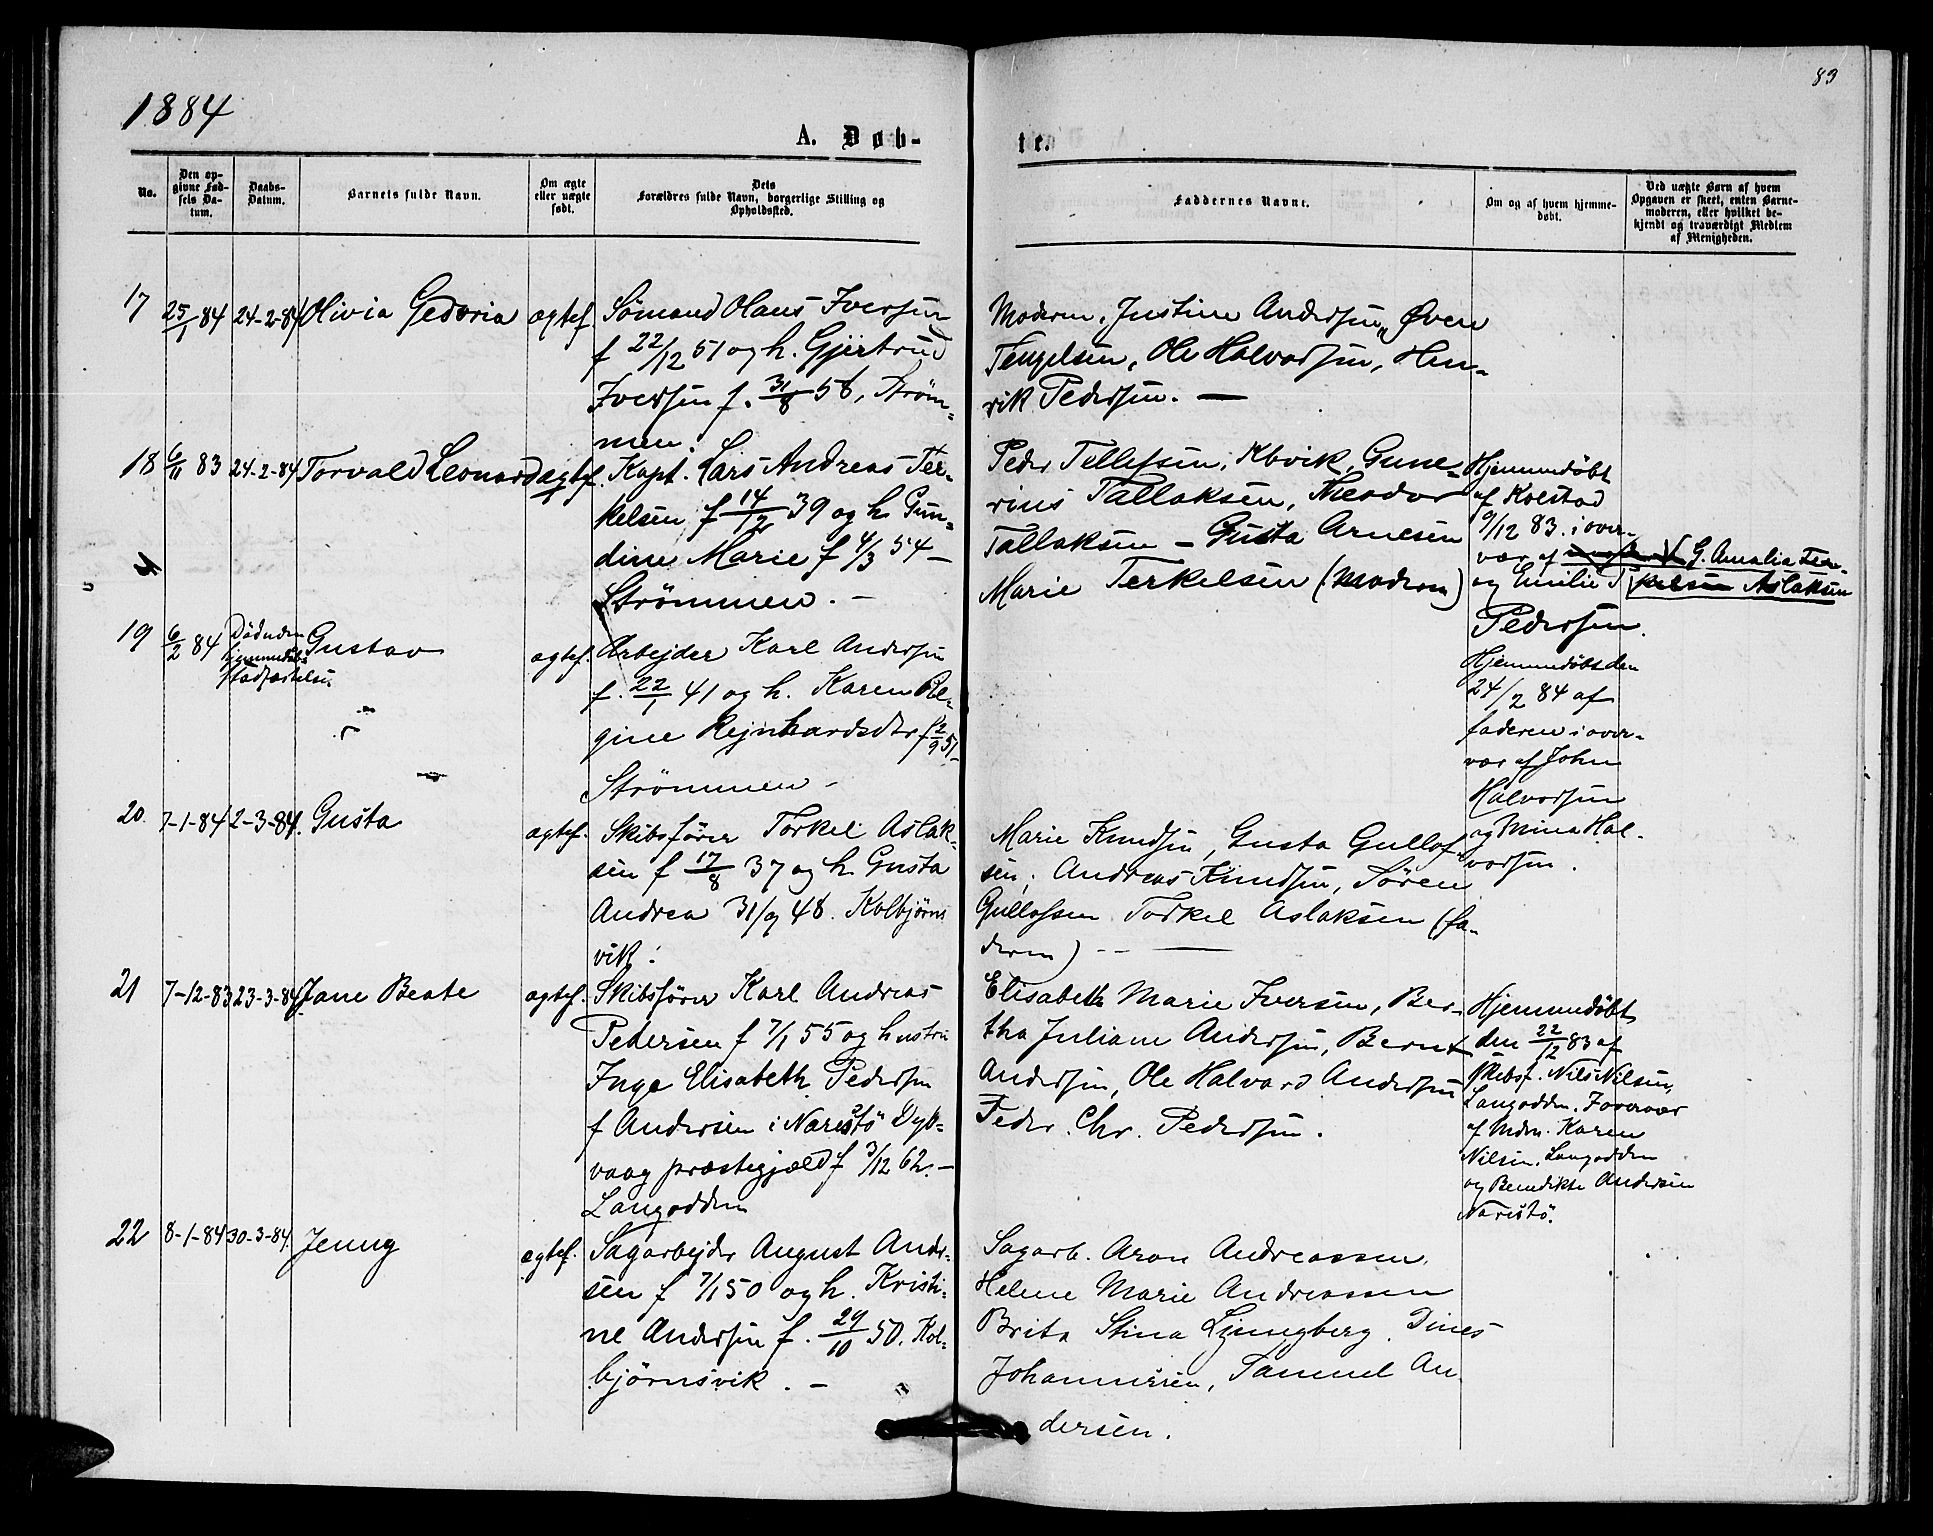 89
1884
A. Døb-
te.
No.
Den op-
givne Fød-
sels Da-
tum.
Daabs-
Datum.
Barnets fulde Navn.
Om ægte
eller uægte
født.
Dets
Forældres fulde Navn, borgerlige Stilling og
Opholdssted.
Faddernes Navne.
Om og af hvem hjemme-
døbt.
Ved uægte Børn af hvem
Opgaven er skeet, enten Barne-
moderen, eller hvilket be-
kjendt og troværdigt Medlem
af Menigheden.
17
25/1-84
24-2-84
Olivia Gedoria
ægtef.
Sömand Olaus Iversen
f 22/12 51 og h. Gjertrud
Iversen f. 31/8 58, Ström-
men.
Moderen, Justine Andersen, Øven
Tengelsen, Ole Halvorsen, Hen-
rik Pedersen. —
18
6/11 83
24-2-84
Torvald Leonard
ægtef.
Kapt. Lars Andreas Ter-
kelsen f 14/12 39 og h Gun-
dine Marie f 4/3 54 —
Strömmen. —
Peder Tellefsen, Kbvik, Gune-
rius Tallaksen, Theodor
Tallaksen — Gusta Arnesen
Marie Terkelsen (Modren)
Hjemmedøbt
af Kolstad
9/12 83. i over-
vær af G. Amalia Ter-
og Emilie T kelsen Aslaksen
Pedersen.
19
6/2 84
Död uden
hjemmedöbs
stadfæstelse
Gustav
ægtef.
Arbejder Karl Andersen
f. 22/1 41 og h. Karen Re-
gine Rejnhardsdtr f 2/9 51
Strömmen —
Hjemmedöbt den
24/2 84 af
faderen i over-
vær af John
Halvorsen
og Mina Hal-
vorsen.
20.
7-1-84
2-3-84.
Gusta
ægtef.
Skibsförer Torkel Aslak-
sen f 17/8 37 og h Gusta
Andrea 31/9 48. Kolbjörns
vik.
Marie Knudsen, Gusta Gullof-
sen, Andreas Knudsen, Sören
Gullofsen Torkel Aslaksen (fa-
deren) — —
21
7-12-83
23-3-84
Jane Beate
ægtef.
Skibsförer Karl Andreas
Pedersen f 7/1 55 og hustru
Inga Elisabeth Pedersen
f Andersen i Narestö Dyb-
vaag præstegjæld f 3/12 62. —
Langodden
Elisabeth Marie Iversen, Ber-
tha Juliane Andersen, Bernt
Andersen, Ole Halvard Andersen
Peder Chr. Pedersen.
Hjemmedöbt
den 22/12 83 af
skibsf. Nils Nilsen,
Langodden. I overvær
af Mdm. Karen
Nilsen, Langodden
og Benedikte Andersen
Narestö.
22
8-1-84
30-3-84.
Jenny
ægtef.
Sagarbejder August Ander-
sen f 7/1 50 og h. Kristi-
ne Andersen f. 29/10 50. Kol-
björnsvik. —
Sagarb. Aron Andreassen.
Helene Marie Andreassen
Brita Stina Ljungberg. Dines
Johannesen, Samuel An
dersen.